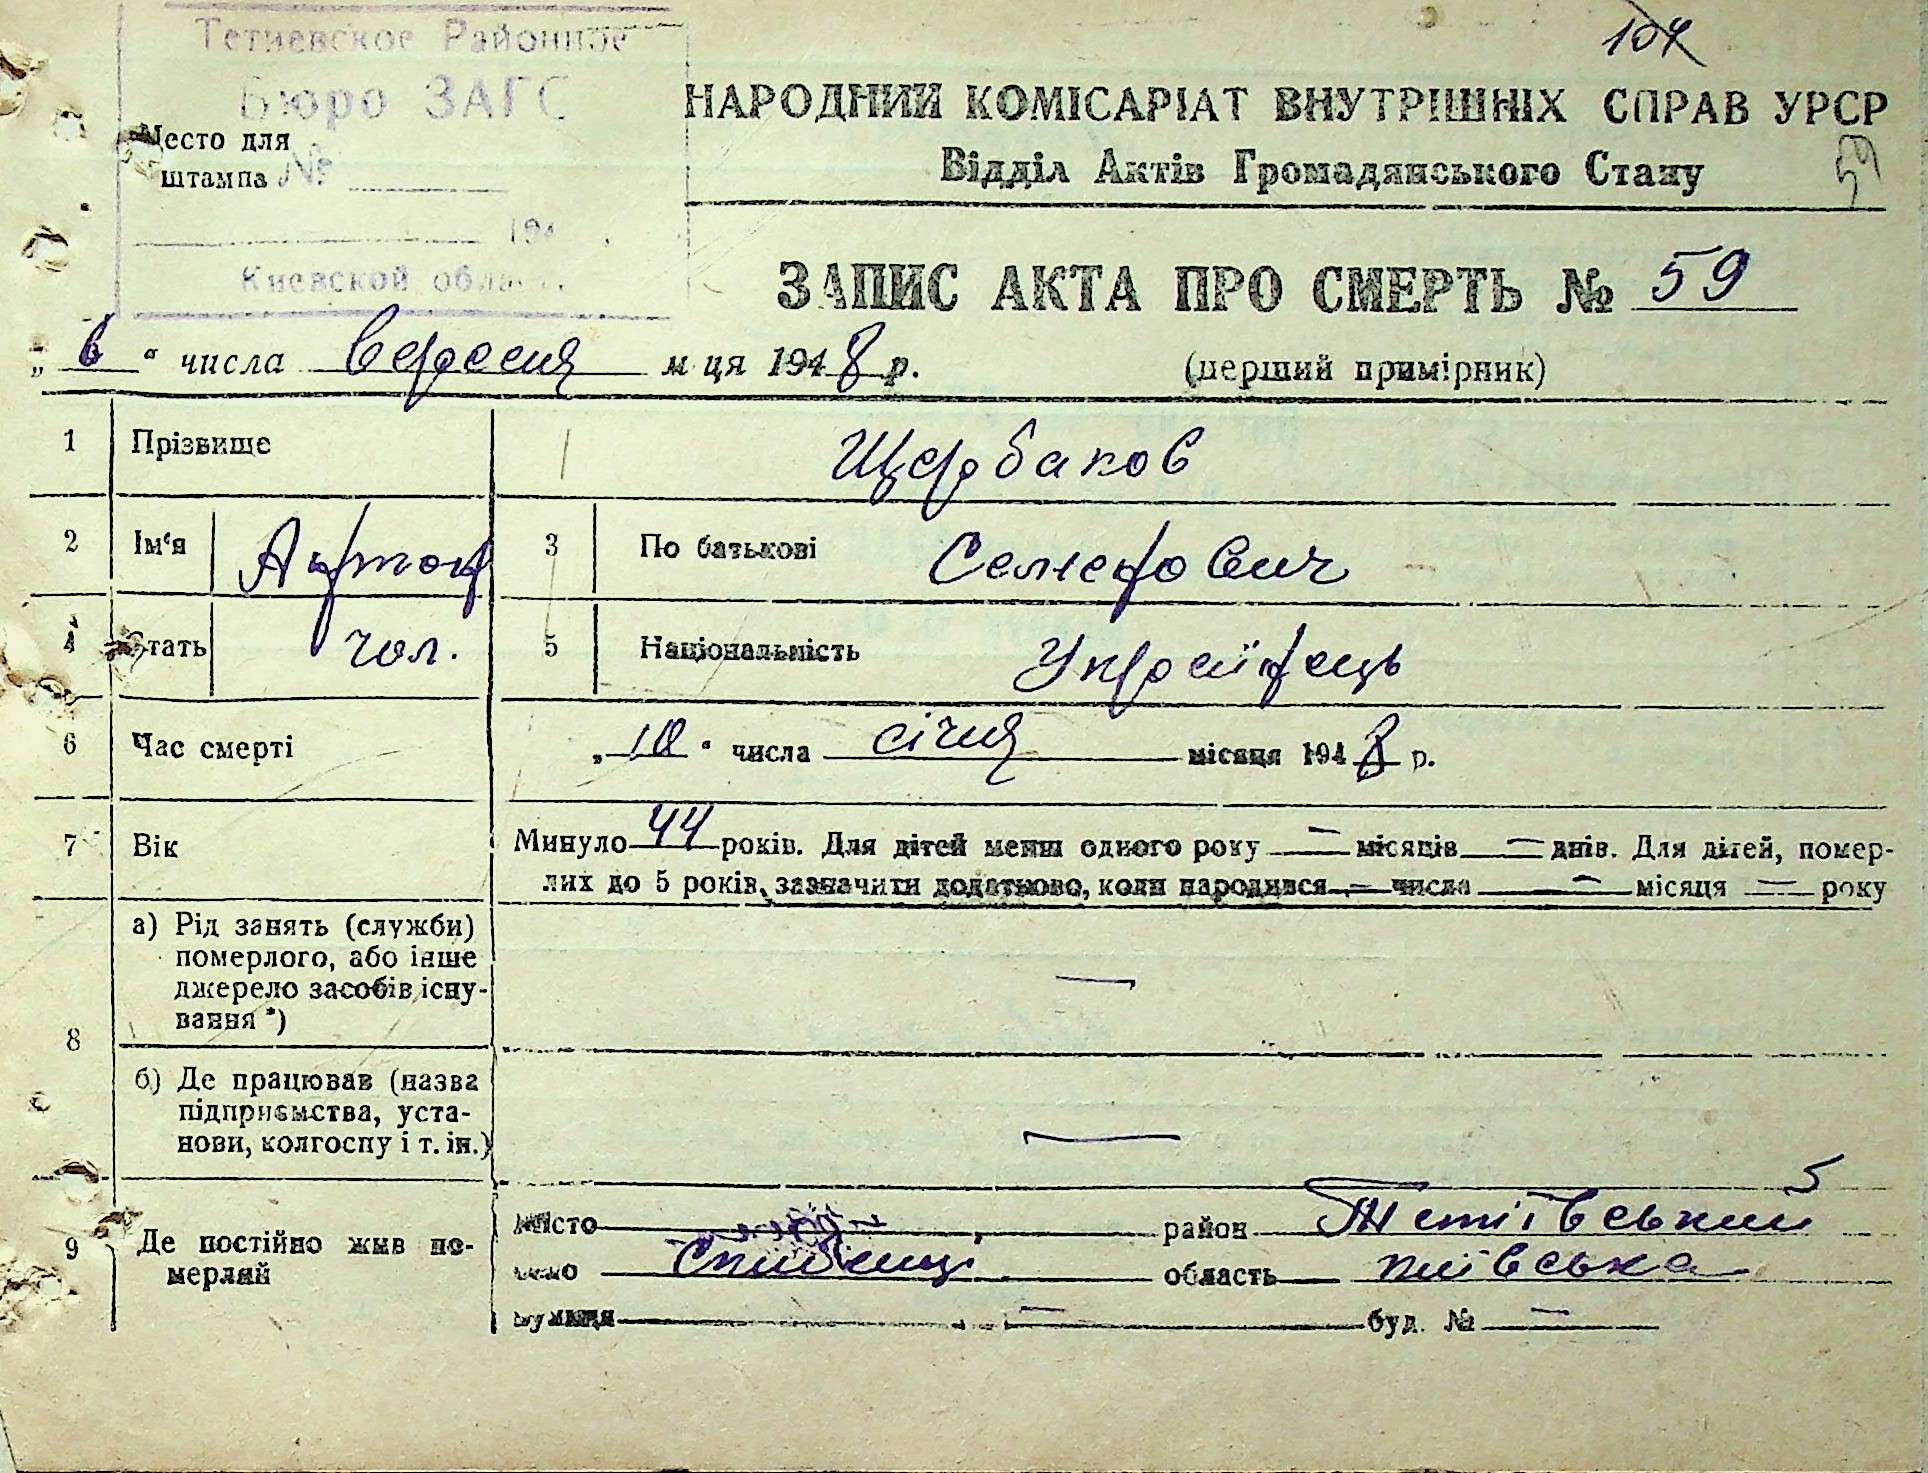 104
Тетиевское Районное
Бюро ЗАГС
Место для
штампа №
194 .
Киевской
НАРОДНИЙ КОМІСАРІАТ ВНУТРІШНІХ СПРАВ УРСР
Відділ Актів Громадянського Стану
59
ЗАПИС АКТА ПРО СМЕРТЬ № 59
„ 6 “ числа вересня м ця 1948 р.
(перший примірник)
1 Прізвище Щербаков
2 Ім'я Антон 3 По батькові Семенович
4 Стать чол. 5 Національність Українець
6 Час смерті „ 10 “ числа січня місяця 1943 р.
7 Вік Минуло 44 років. Для дітей менш одного року — місяців — днів. Для дітей, помер-
лих до 5 років, зазначити додатково, коли народився — числа — місяця — року
8
а) Рід занять (служби)
померлого, або інше
джерело засобів існу-
вання *) —
б) Де працював (назва
підприємства, уста-
нови, колгоспу і т. ін.) —
9 Де постійно жив по-
мерлий
місто район Тетіївський
село область київська
вулиця — буд. № —